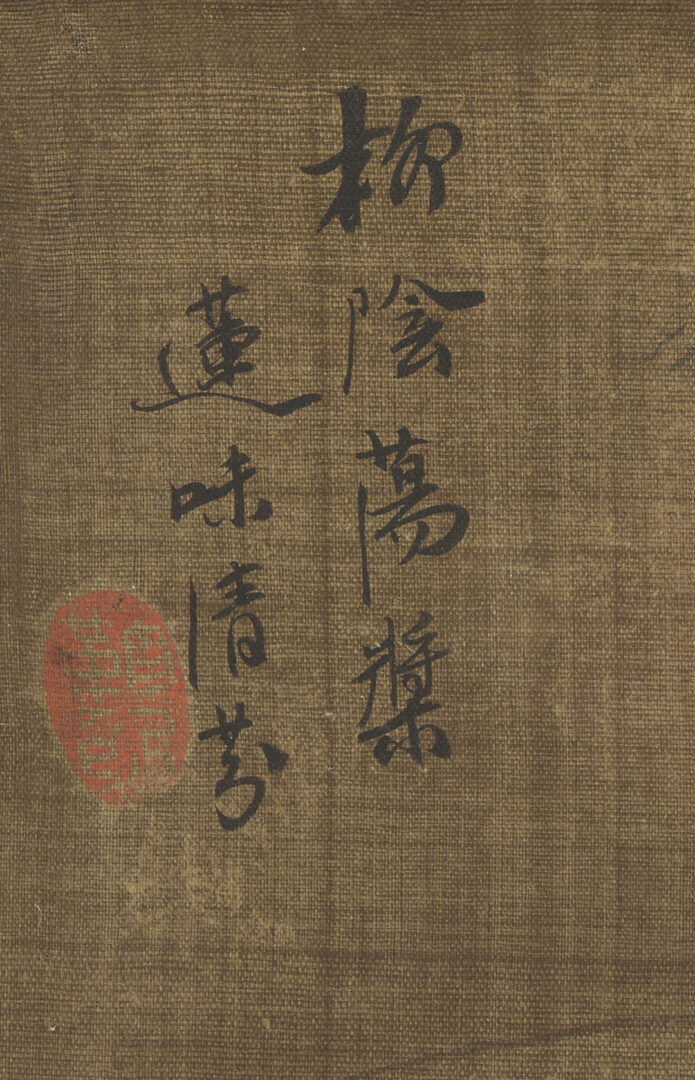 柳陰蕩槳
蓮味清芬